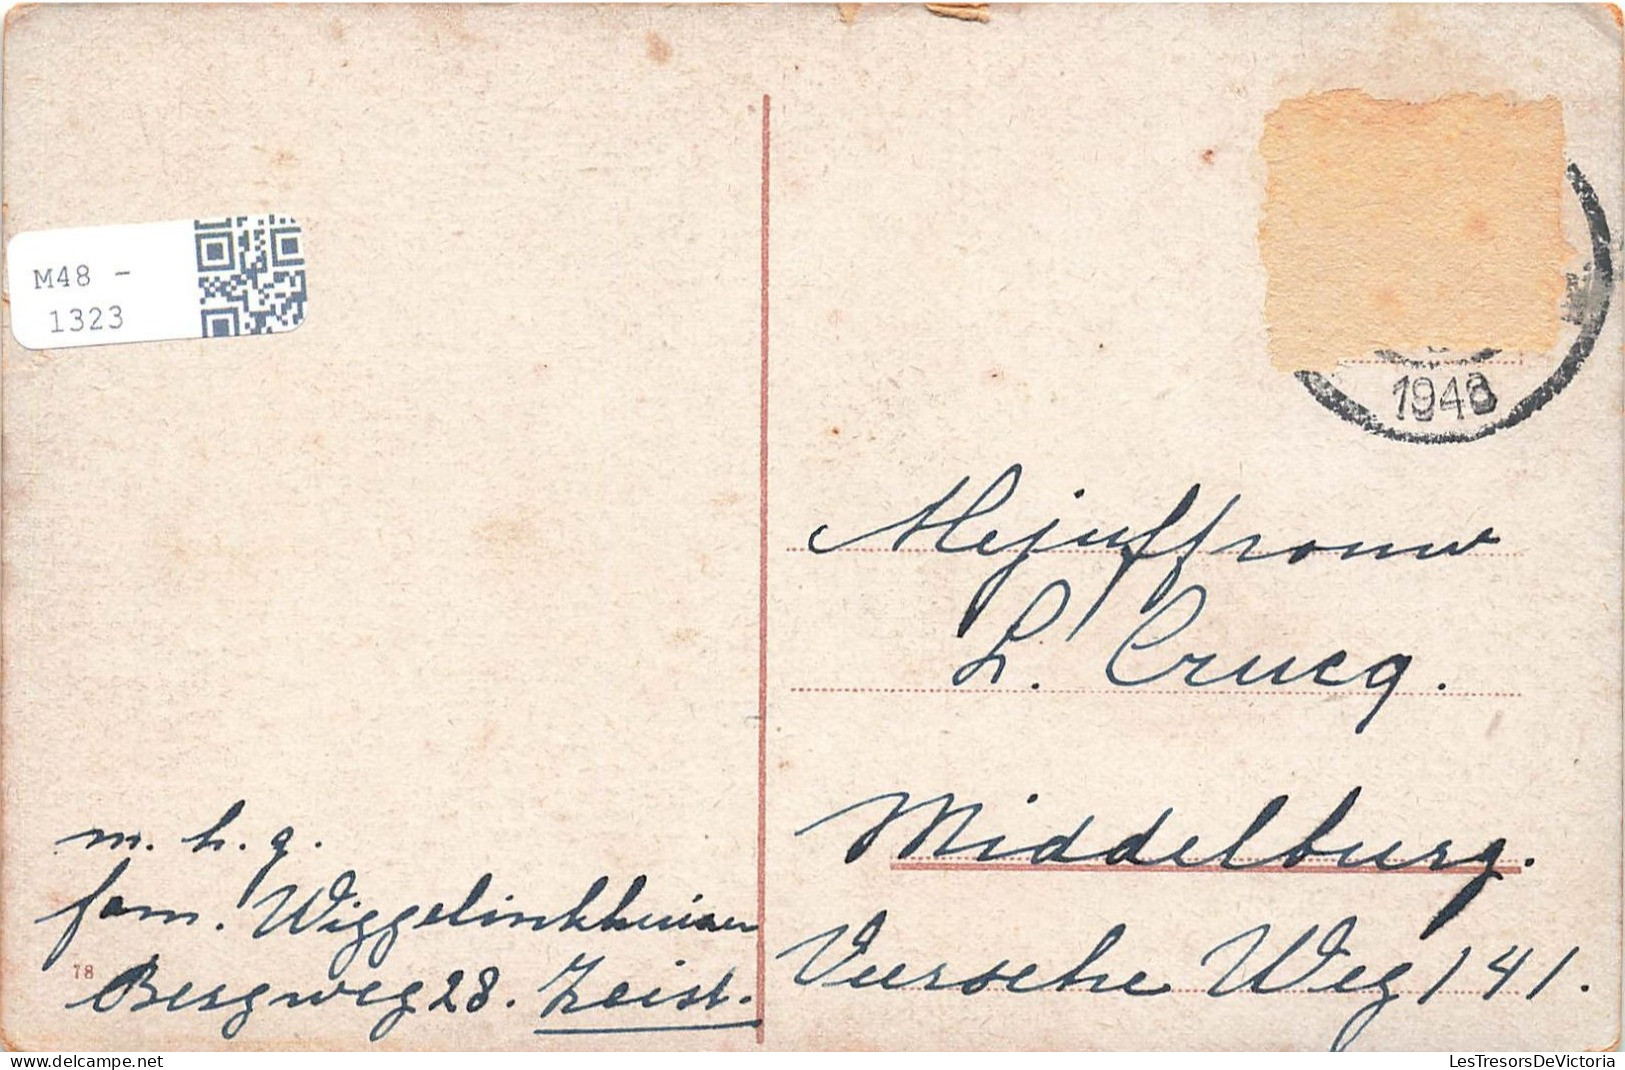 M48 -
1323
1948
Mejuffrouw
L. Crucq.
Middelburg.
Veersche Weg 141.
m. h. g.
fam. Wiggelinkhuizen
Bergweg 28. Zeist.
78
LesTresorsDeVictoria